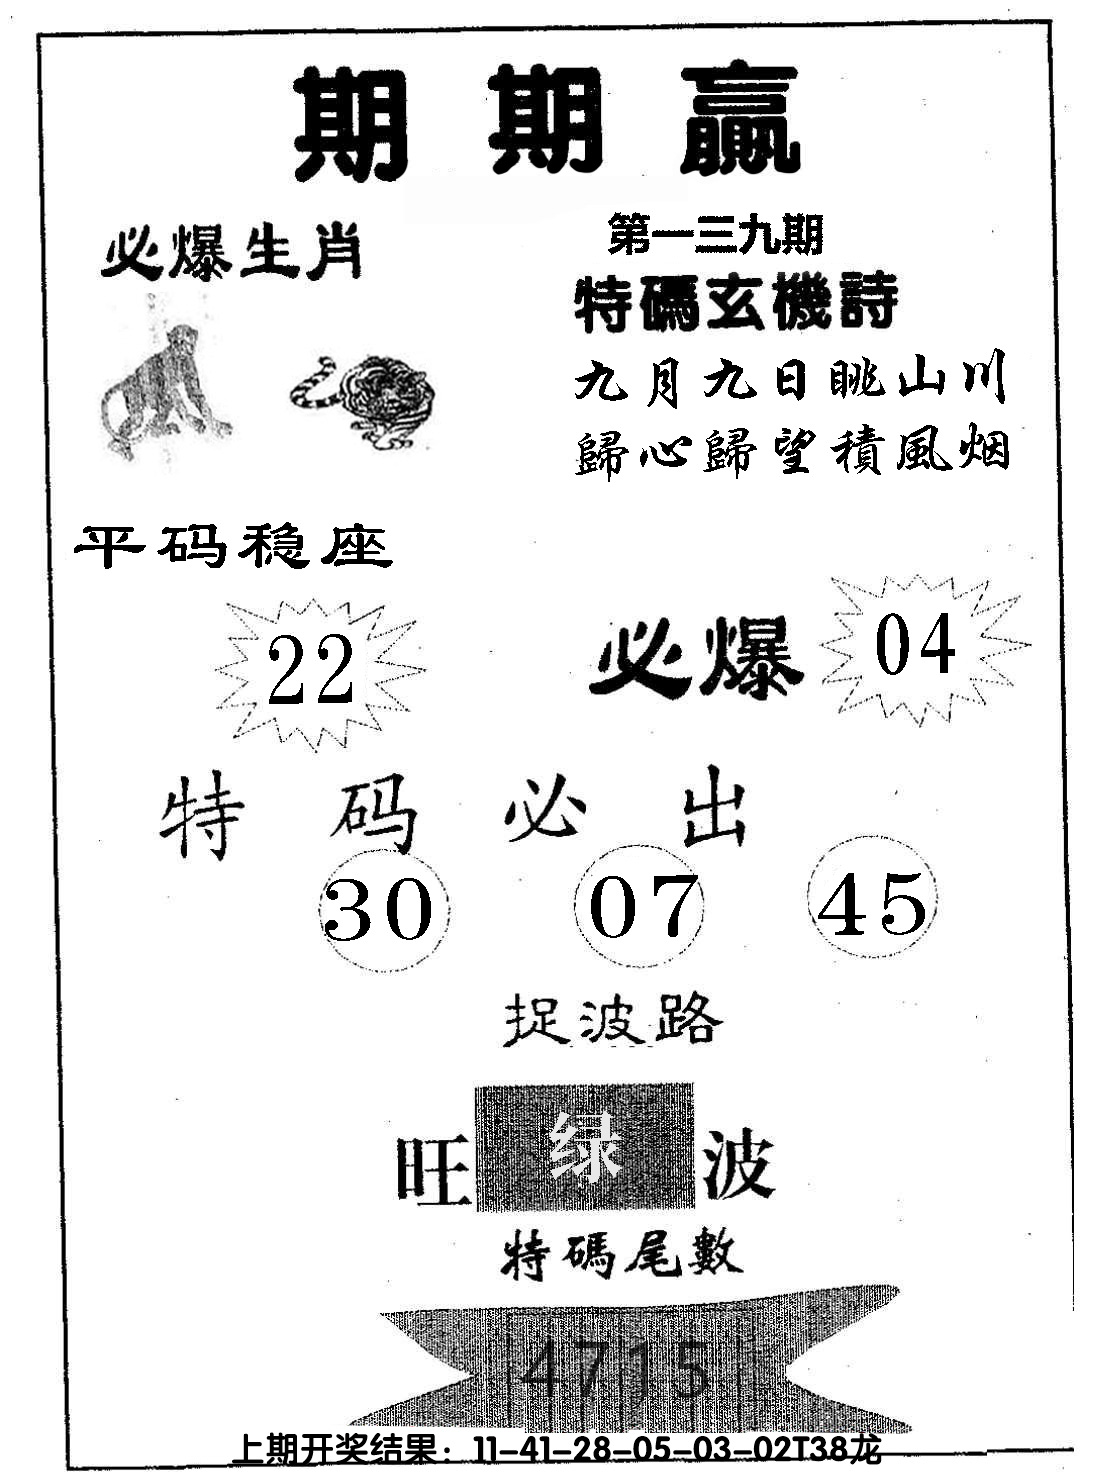 期期赢
第一三九期
必爆生肖
特碼玄機詩
九月九日眺山川
歸心歸望積風烟
平码稳座
22
必爆 04
特码必出
30 07 45
捉波路
旺绿波
特碼尾數
4715
上期开奖结果：11-41-28-05-03-02T38龙